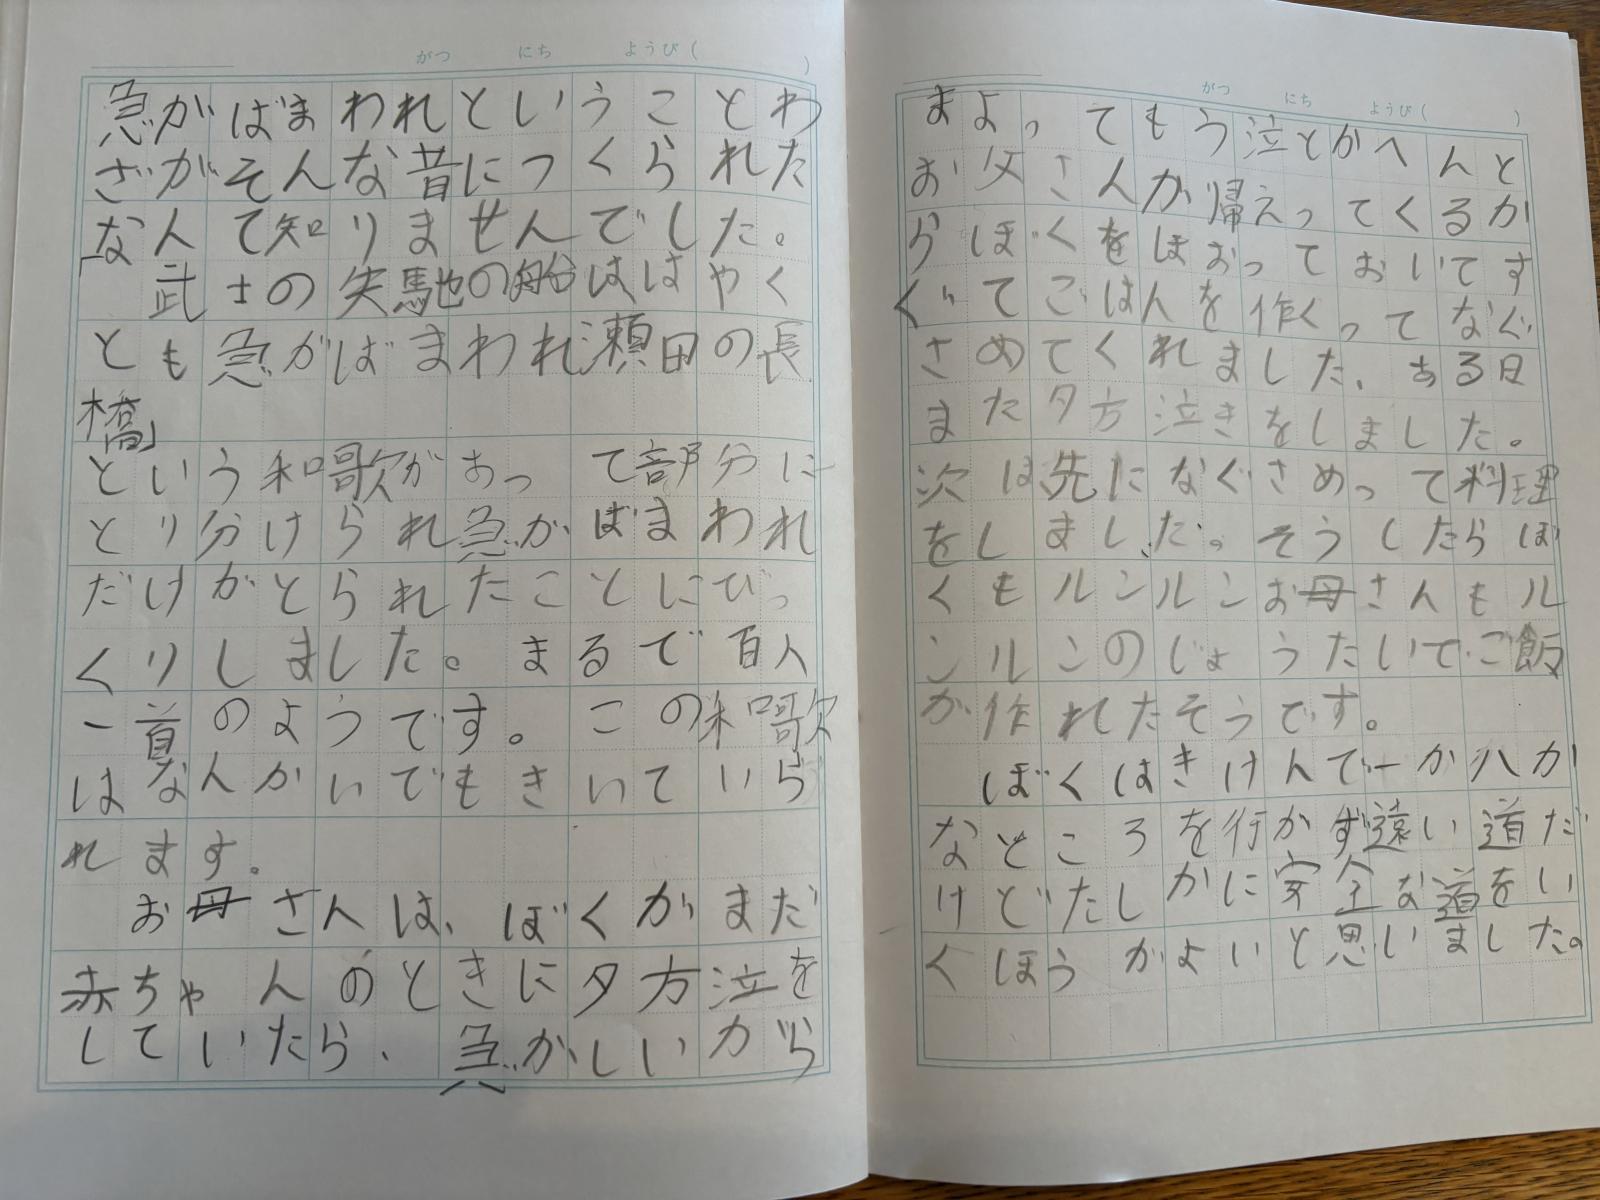 がつ にち ようび( )
急がばまわれということわ
ざがそんな昔につくられた
なんて知りませんでした。
「武士の矢馳の船ははやく
とも急がばまわれ瀬田の長
橋」
という和歌があって部分に
とり分けられ急がばまわれ
だけがとられたことにびっ
くりしました。まるで百人
一首のようです。この和歌
はなんかいでもきいていら
れます。
お母さんは、ぼくがまだ
赤ちゃんのときに夕方泣を
していたら、急がしいがら
がつ にち ようび( )
まよってもう泣とかへんと
お父さんが帰えってくるか
らぼくをほおっておいてす
ぐってごはんを作くってなぐ
さめてくれました、ある日
また夕方泣きをしました。
次は先になぐさめって料理
をしました。そうしたらぼ
くもルンルンお母さんもル
ンルンのじょうたいでご飯
が作れたそうです。
ぼくはきけんで一か八か
なところを行かず遠い道だ
けどたしかに安全な道をい
くほうがよいと思いました。